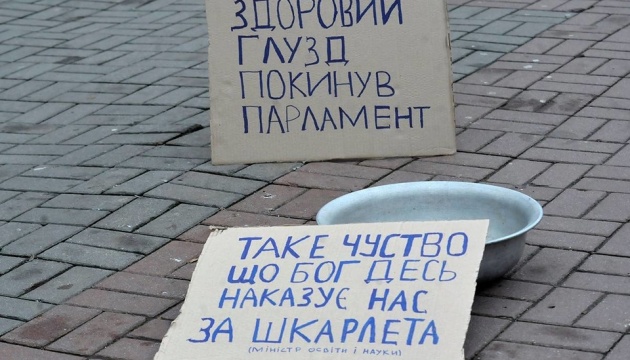 ЗДОРОВИЙ
ГЛУЗД
ПОКИНУВ
ПАРЛАМЕНТ
ТАКЕ ЧУСТВО
ЩО БОГ ДЕСЬ
НАКАЗУЄ НАС
ЗА ШКАРЛЕТА
(МІНІСТР ОСВІТИ І НАУКИ)